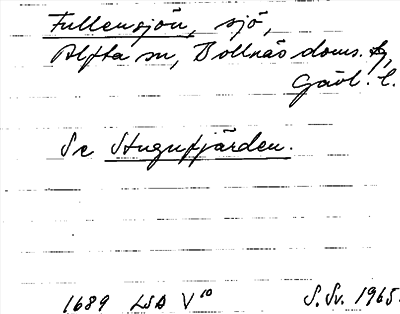 Fullensjön, sjö,
Alfta sn, Bollnäs doms.
Gävl. l.
Se Stugufjärden.
1689 LSA V10 S. Sv. 1965.